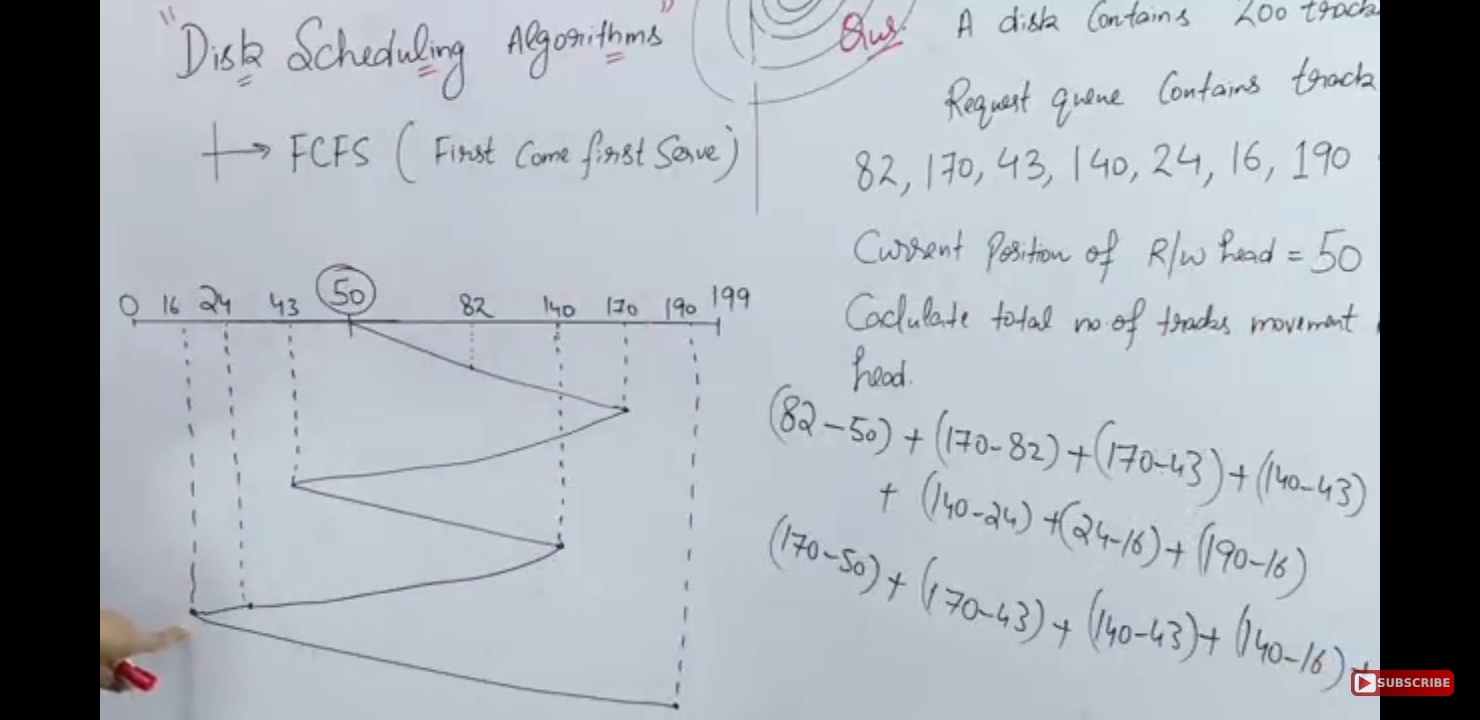 "Disk Scheduling Algorithms"
→ FCFS ( First Come first Serve)
0 16 24 43 50 82 140 170 190 199
Que. A disk Contains 200 track
Request queue Contains track
82, 170, 43, 140, 24, 16, 190
Current Position of R/W head = 50
Caclulate total no of tracks movement
head.
(82-50) + (170-82) + (170-43) + (140-43)
+ (140-24) + (24-16) + (190-16)
(170-50) + (170-43) + (140-43) + (140-16) +
SUBSCRIBE